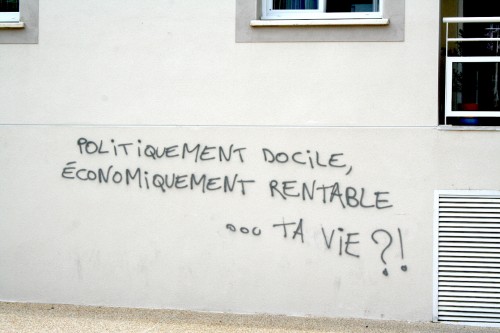 POLITIQUEMENT DOCILE,
ÉCONOMIQUEMENT RENTABLE
... TA ViE ?!